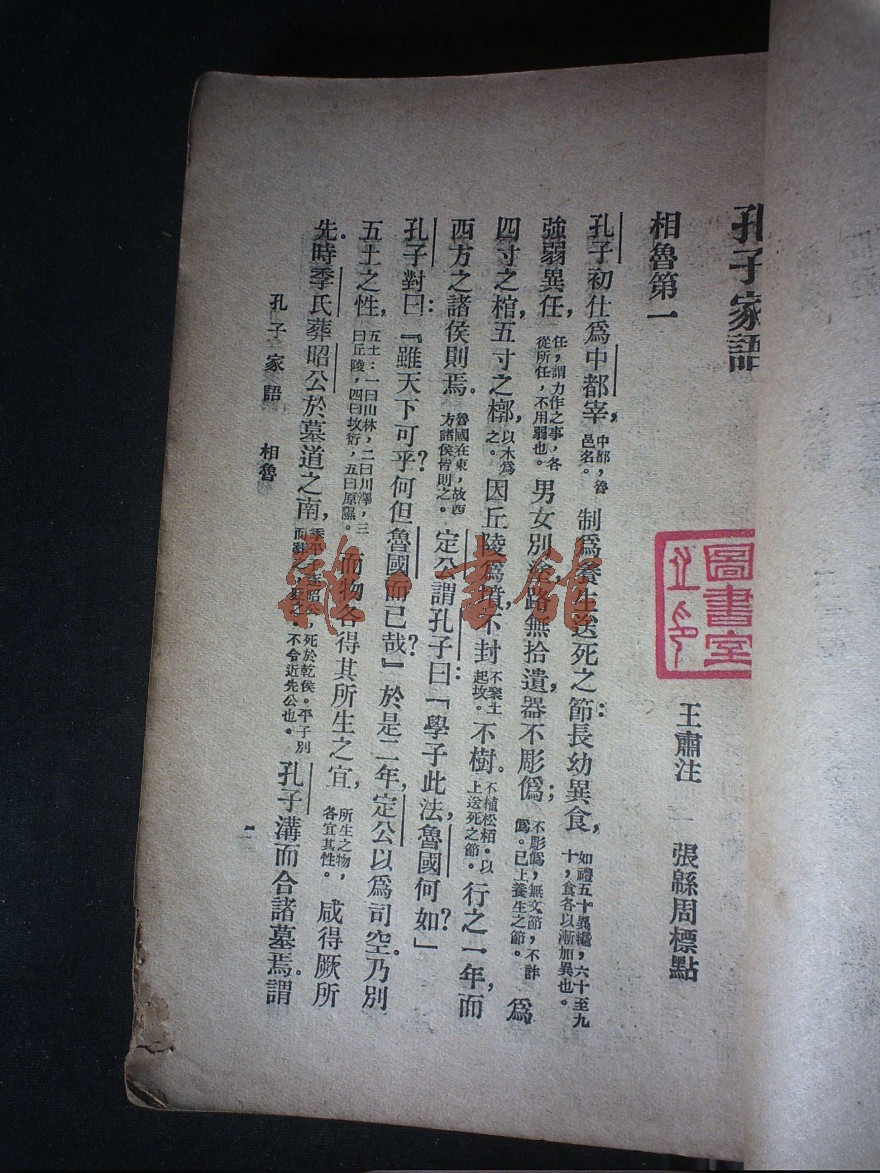 孔子家語
相魯第一
王肅注　張緜周標點
圖書室
孔子初仕爲中都宰，中都，魯邑名。制爲養生送死之節：長幼異食，如禮五十異糧，六十至九十，食各以漸加異也。
強弱異任，任，謂力作之事，各從所任，不用弱也。男女別塗，路無拾遺，器不彫僞；不彫僞，無文節，不詐僞。已上養生之節。爲
四寸之棺，五寸之槨，以木爲之。因丘陵爲墳，不封不聚土起坟。不樹。不植松栢。以上送死之節。行之一年，而
西方之諸侯則焉。魯國在東，故西方諸侯皆則之。定公謂孔子曰：「學子此法，魯國何如？」
孔子對曰：『雖天下可乎？何但魯國而已哉？』於是二年，定公以爲司空。乃別
五土之性，五土：一曰山林，二曰川澤，三曰丘陵，四曰坟衍，五曰原隰。而物各得其所生之宜，所生之物，各宜其性。咸得厥所
先時季氏葬昭公於墓道之南，死於乾侯。平子別不令近先公也。孔子溝而合諸墓焉。謂
孔子家語　相魯
一
雜·書館